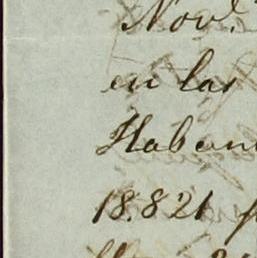 Nov.
en las
Haban
18.821